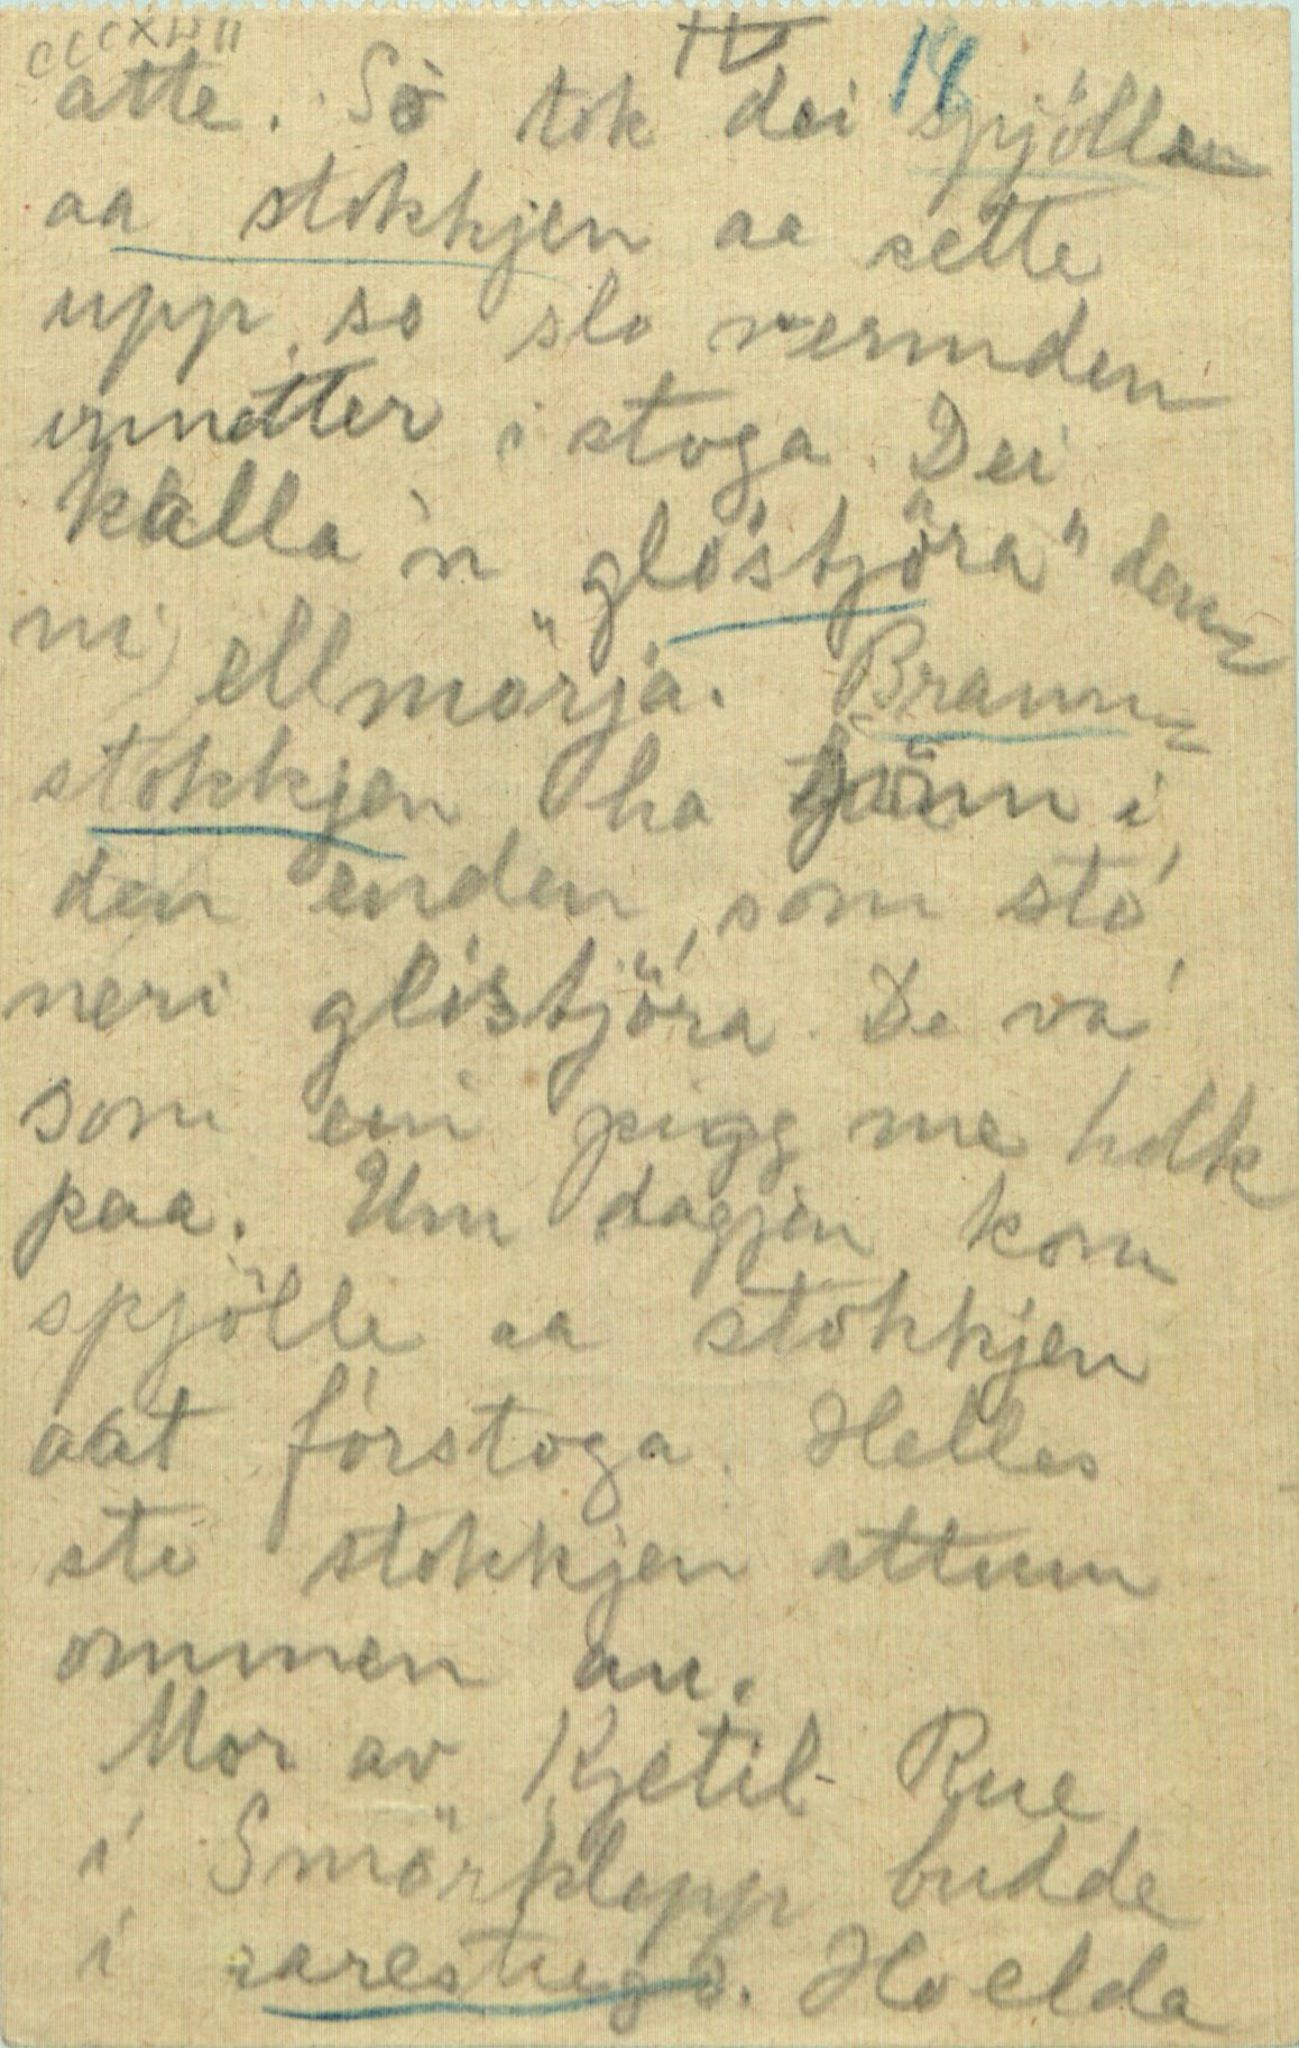 IV 18
atte. So tok dei spjöllen
aa stokkjen aa sette
upp, so slo vermden
innatter i stoga. Dei
kalla 'n "glóstjöra" denn
ni, ellmorja. Brann
stokkjen ha jönn i
den enden, som sto
neri glóstjöra. De va
som ein pigg me holk
paa. Um dagjen kom
spjölle aa stokkjen
aat fórstoga. Helles
sto stokkjen attum
ommen au.
Mor av Kjetil Rue
i Smörklepp budde
i rarestugo. Ho elda